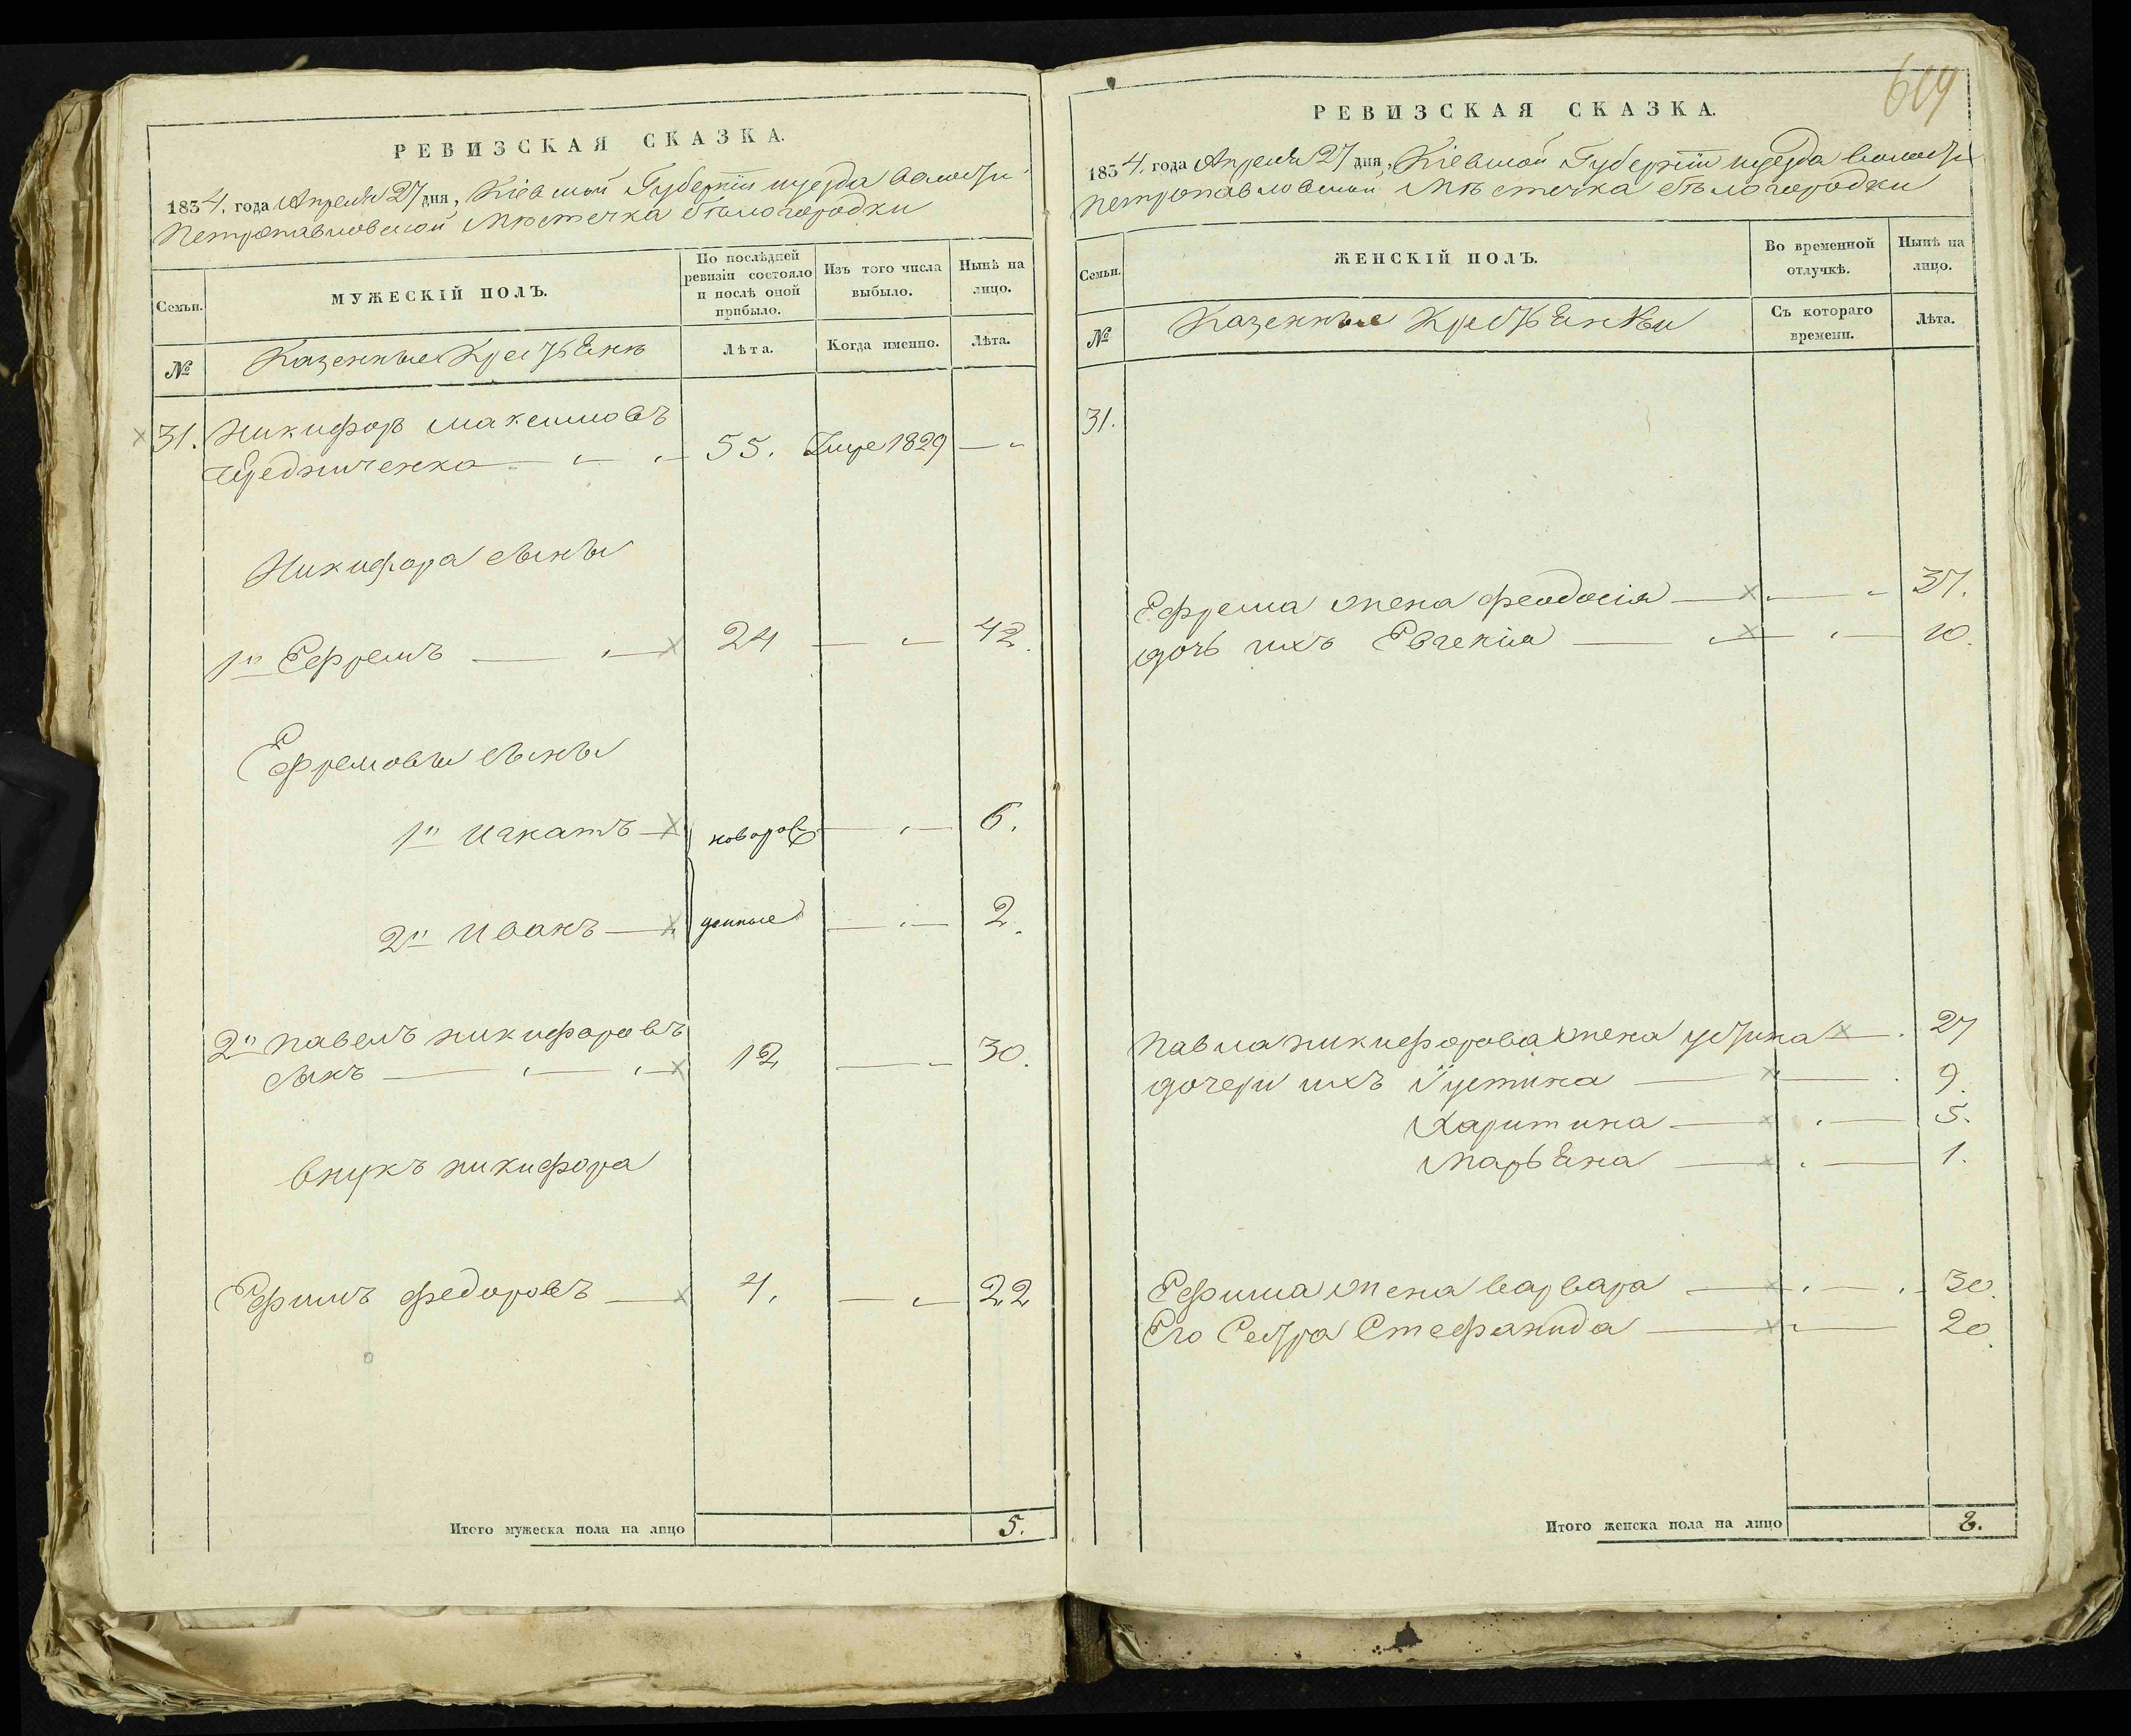 РЕВИЗСКАЯ СКАЗКА.
1834. года Апреля 27 дня, Кіевской Губерніи и уезда волости
Петропавловской Мѣстечка Бѣлогородки
Семьи.
МУЖЕСКІЙ ПОЛЪ.
По послѣдней ревизіи состояло и послѣ оной прибыло.
Изъ того числа выбыло.
Нынѣ на лицо.
№
Казенные Крестьяне
Лѣта.
Когда именно.
Лѣта.
31. Никифоръ Максимовъ
Чередниченко 55. Умре 1829
Никифора сыны
1й Ефремъ 24 42.
Ефремовы сыны
1й Игнатъ новорож 6.
2й Иванъ денные 2.
2й Павелъ Никифоровъ
сынъ 12 30.
Внукъ Никифора
Ефимъ Федоровъ 4. 22
Итого мужеска пола на лицо 5.
619
РЕВИЗСКАЯ СКАЗКА.
1834. года Апреля 27 дня, Кіевской Губерніи и уезда волости
Петропавловской Мѣстечка Бѣлогородки
Семьи.
ЖЕНСКІЙ ПОЛЪ.
Во временной отлучкѣ.
Нынѣ на лицо.
№
Казенные Крестьянки
Съ котораго времени.
Лѣта.
31.
Ефрема жена Феодосія 37.
дочь ихъ Евгенія 10.
Павла Никифорова жена Устина 27
дочери ихъ Іустина 9.
Харитина 5.
Марьяна 1.
Ефима жена Варвара 30.
Его Сестра Стефанида 20.
Итого женска пола на лицо 8.